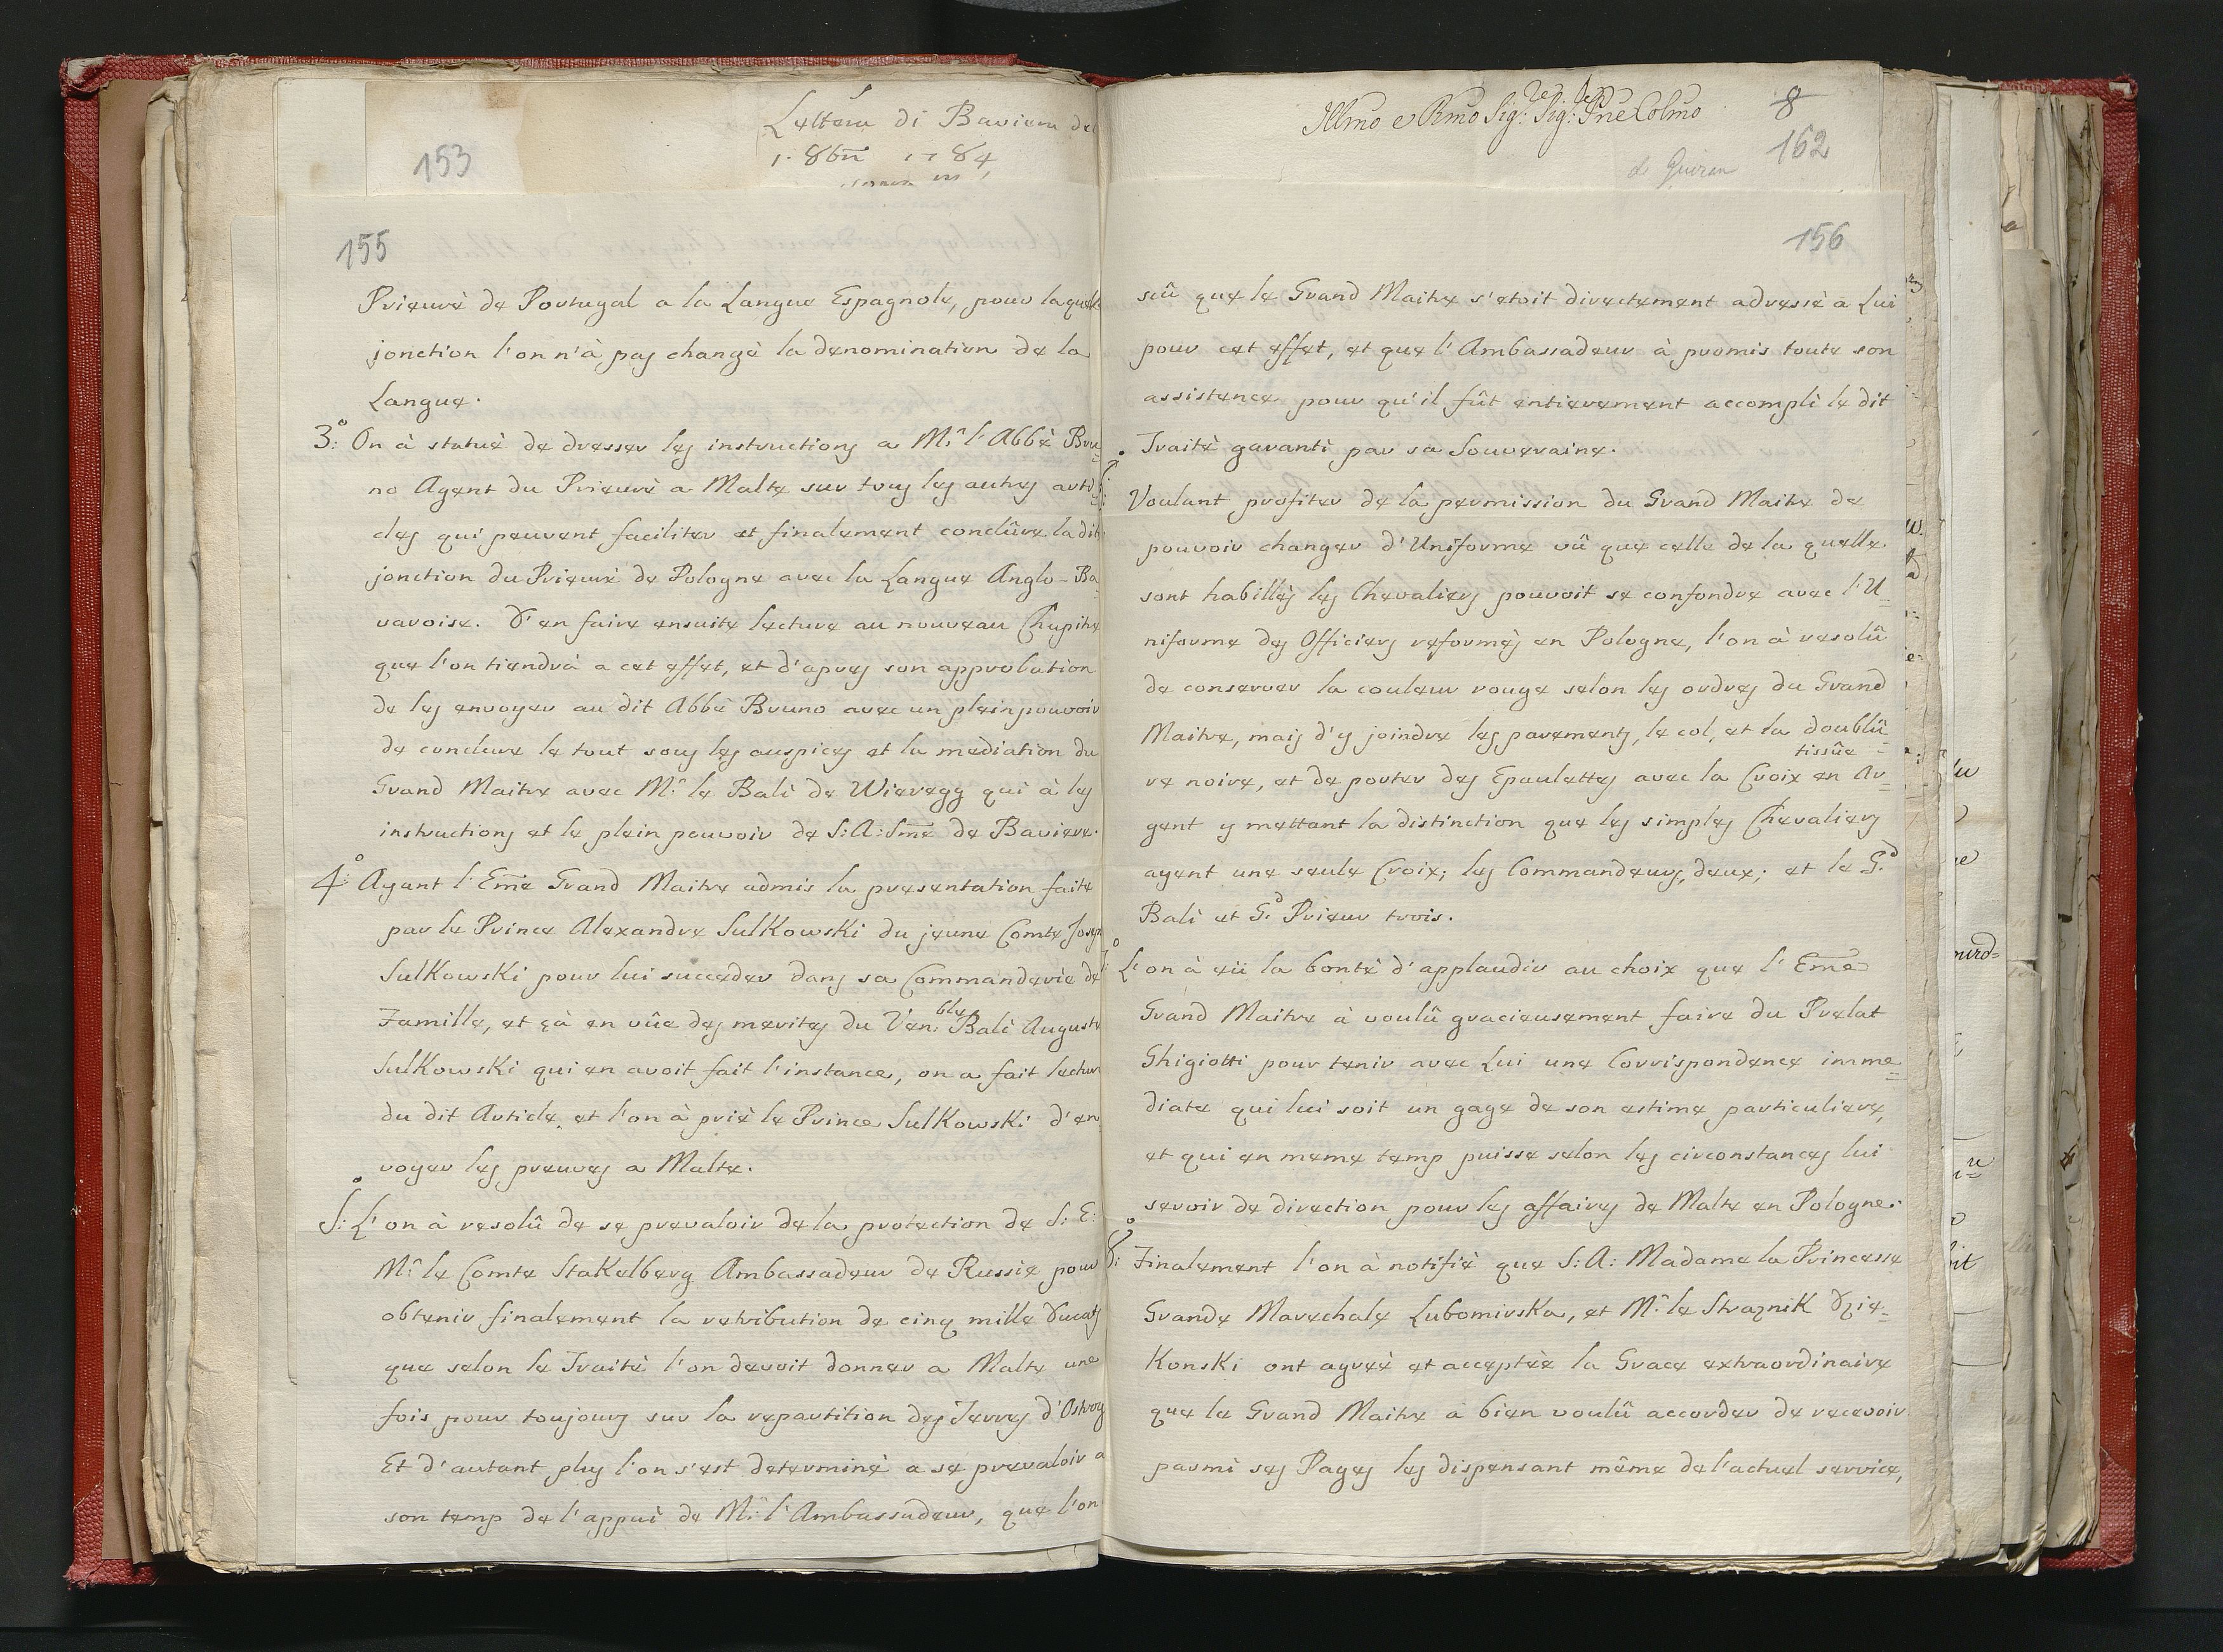 Lettera di Baviera del
1. 8bre 1784
153
155
Prieurè de Portugal a la Langue Espagnole, pour laquelle
jonction l'on n'à pas changè la denomination de la
Langue.
3:° On à statuè de dresser les instructions a Mr. l'Abbè Bru=
no Agent du Prieurè a Malte sur tous les autres arti=
cles qui peuvent faciliter et finalement conclûre la dite
jonction du Prieurè de Pologne avec la Langue Anglo-Ba=
varoise. D'en faire ensuite lecture au nouveau Chapitre
que l'on tiendrà a cet effet, et d'apres son approbation
de les envoyer au dit Abbè Bruno avec un plein pouvoir
de conclure le tout sous les auspices et la mediation du
Grand Maitre avec Mr. le Bali de Wieregg qui à les
instructions et le plein pouvoir de S: A: Sme de Baviere.
4:° Ayant l'Eme Grand Maitre admis la presentation faite
par le Prince Alexandre SulKowski du jeune Comte Josep
SulKowski pour lui succeder dans sa Commanderie de
Famille, et çà en vûe des merites du Ven:ble Bali Auguste
SulKowski qui en avoit fait l'instance, on a fait lecture
du dit Article, et l'on à priè le Prince SulKowski d'en
voyer les preuves a Malte.
5:° L'on à resolû de se prevaloir de la protection de S: E:
Mr. le Comte StaKelberg Ambassadeur de Russie pour
obtenir finalement la retribution de cinq mille Ducats
que selon le Traitè l'on devoit donner a Malte une
fois pour toujours sur la repartition des Terres d'Ostrog
Et d'autant plus l'on s'est determinè a se prevaloir a
son temp de l'appui de Mr. l'Ambassadeur, que l'on
Illmo e Rmo Sig:re Sig:re Pne Colmo
8
162
156
sçû que le Grand Maitre s'etoit directement adressè a Lui
pour cet effet, et que l'Ambassadeur à promis toute son
assistence pour qu'il fût entierement accompli le dit
Traitè garanti par sa Souveraine.
Voulant profiter de la permission du Grand Maitre de
pouvoir changer d'Uniforme vû que celle de la quelle
sont habillès les Chevaliers pouvoit se confondre avec l'U=
niforme des Officiers reformès en Pologne, l'on à resolû
de conserver la couleur rouge selon les ordres du Grand
Maitre, mais d'y joindre les parements, le col, et la doublû=
re noire, et de porter des Epaulettes avec la Croix tissûe en Ar=
gent y mettant la distinction que les simples Chevaliers
ayent une seule Croix; les Commandeurs, deux; et le G.d
Bali et G.d Prieur trois.
L'on à eü la bontè d'applaudir au choix que l'Eme
Grand Maitre à voulû gracieusement faire du Prelat
Ghigiotti pour tenir avec Lui une Corrispondence imme=
diate qui lui soit un gage de son estime particuliere,
et qui en meme temp puisse selon les circonstances lui
servoir de direction pour les affaires de Malte en Pologne.
8:° Finalement l'on à notifiè que S: A: Madame la Princesse
Grande Marechale LubomirsKa, et Mr. le StrazniK Dzie=
KonsKi ont agreè et acceptèe la Grace extraordinaire
que le Grand Maitre à bien voulû accorder de recevoir
parmi ses Pages les dispensant même de l'actuel service,